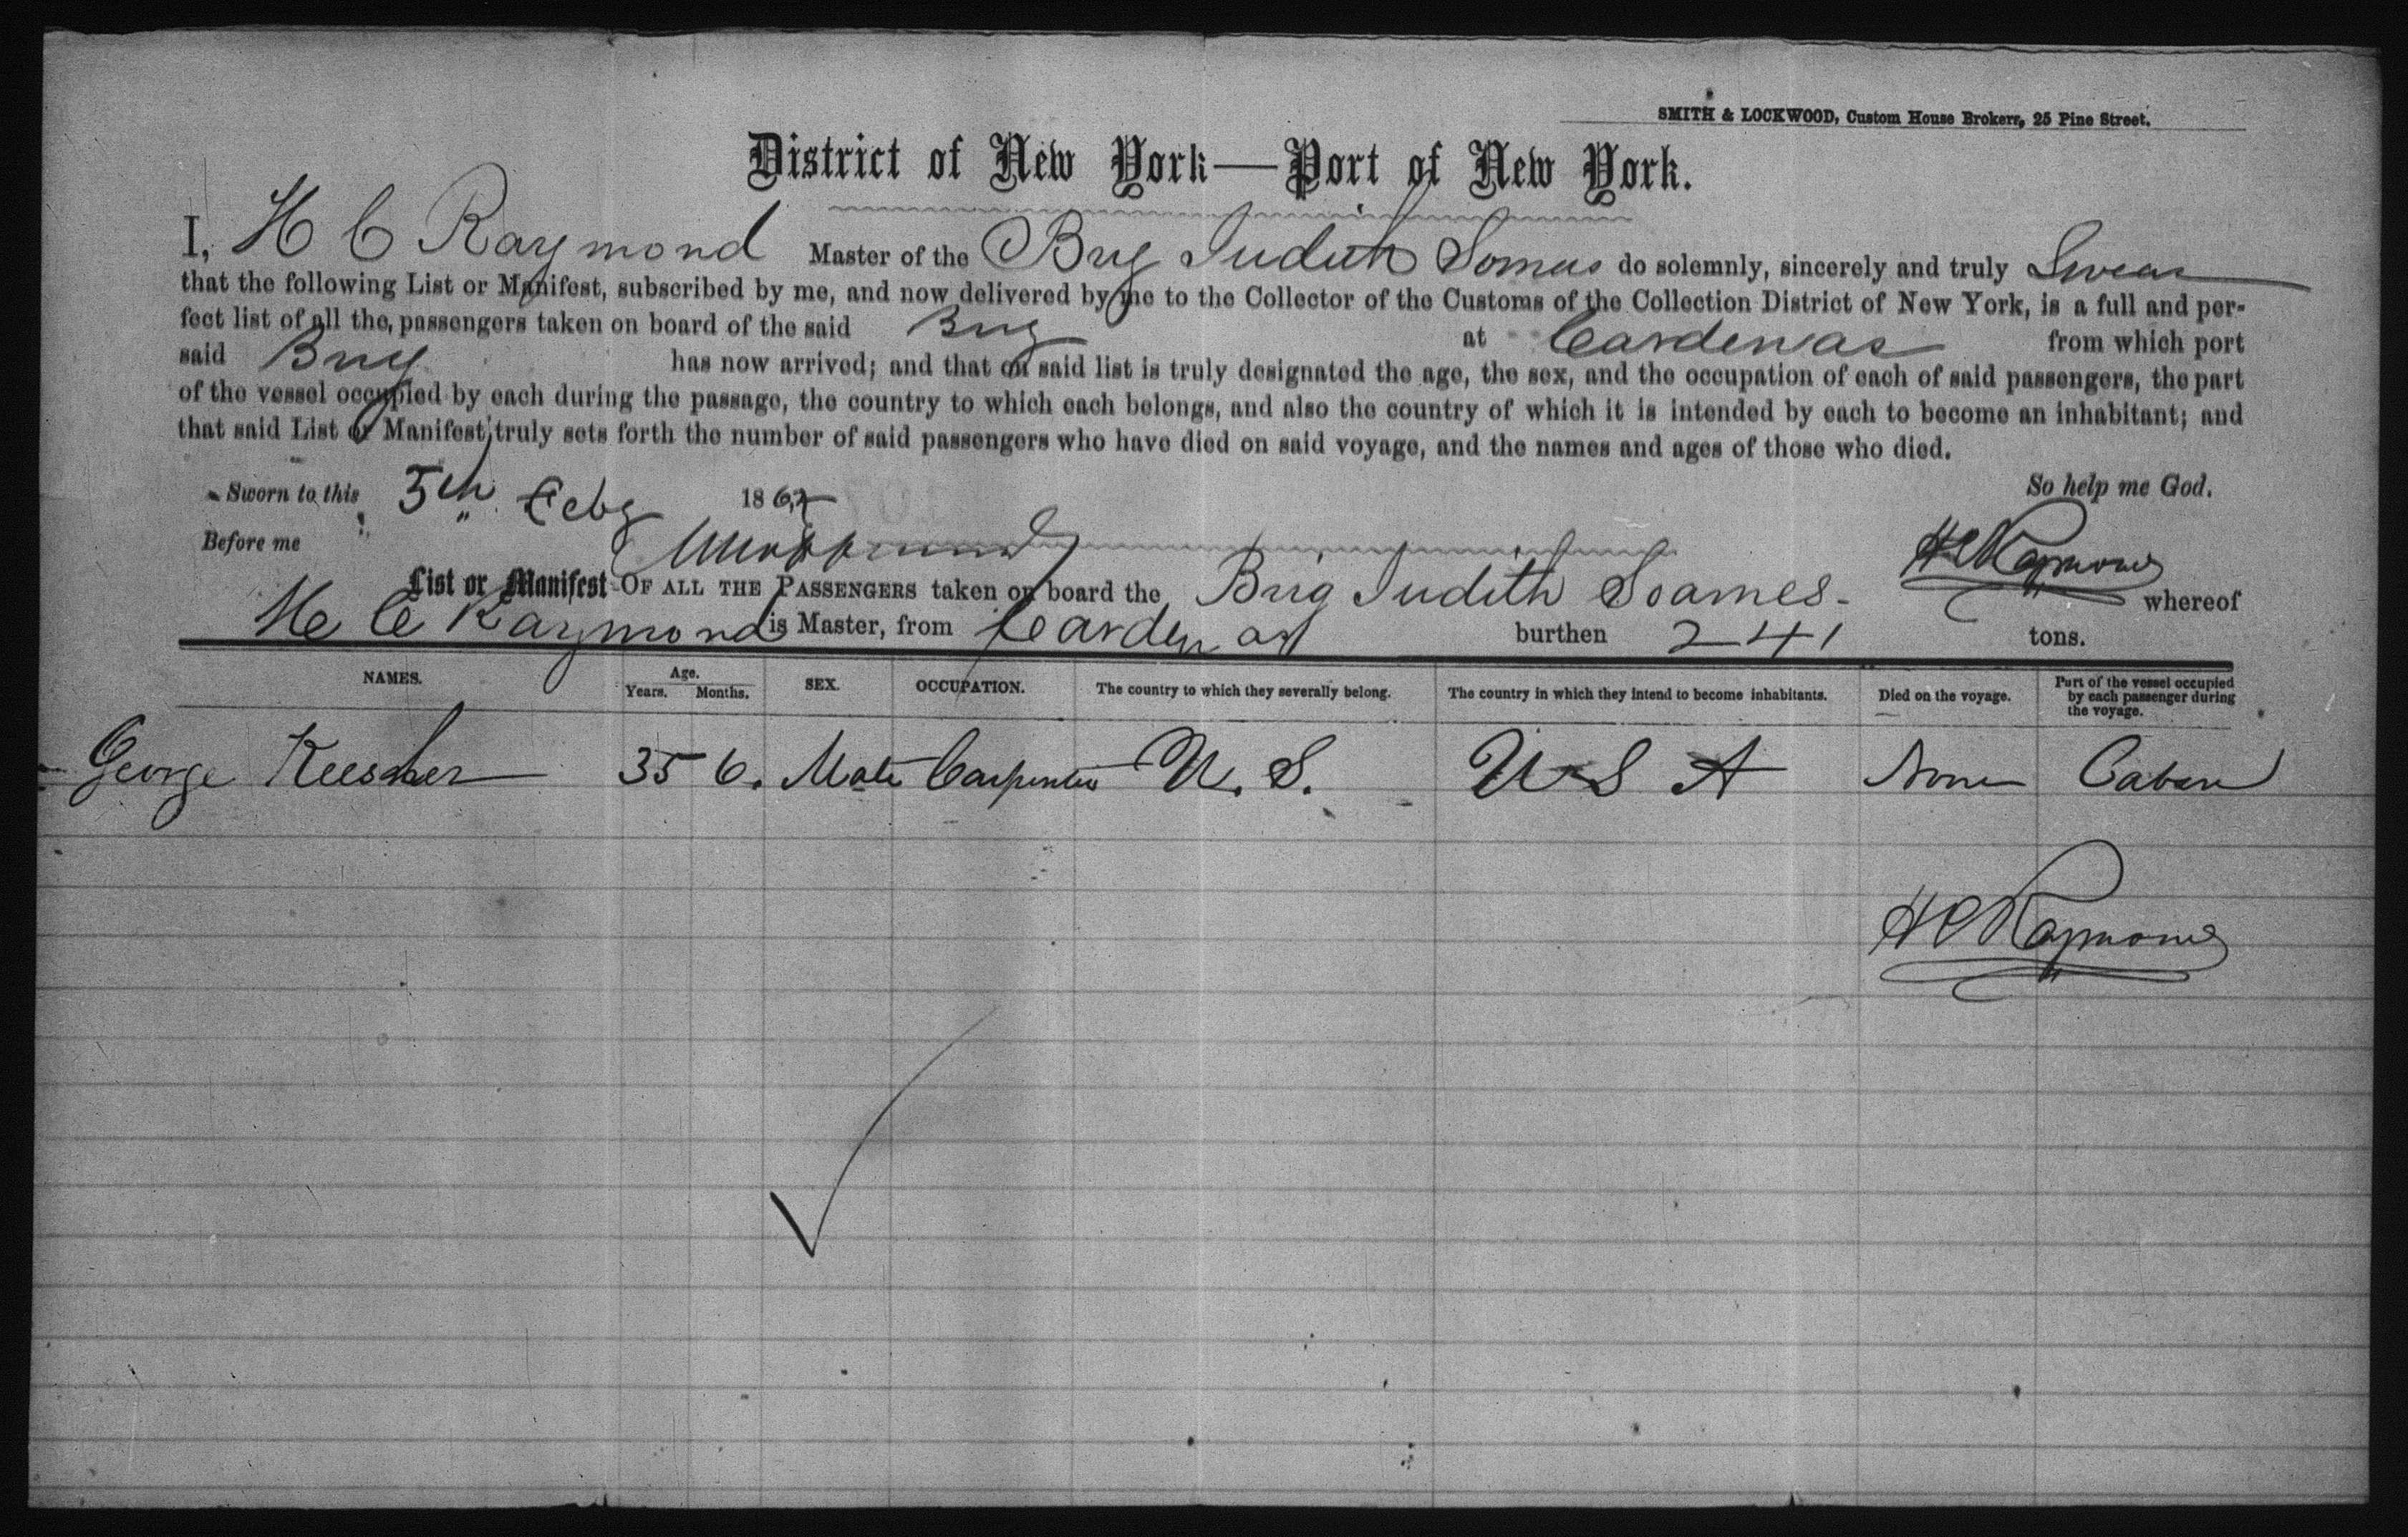 SMITH & LOCKWOOD, Custom House Brokers, 25 Pine Street.
District of New York—Port of New York.
I, H C Raymond Master of the Brig Judith Somes do solemnly, sincerely and truly Swear
that the following List or Manifest, subscribed by me, and now delivered by me to the Collector of the Customs of the Collection District of New York, is a full and per-
fect list of all the passengers taken on board of the said Brig at Cardenas from which port
said Brig has now arrived; and that on said list is truly designated the age, the sex, and the occupation of each of said passengers, the part
of the vessel occupied by each during the passage, the country to which each belongs, and also the country of which it is intended by each to become an inhabitant; and
that said List or Manifest truly sets forth the number of said passengers who have died on said voyage, and the names and ages of those who died.
Sworn to this 5th Feby 186 So help me God.
Before me H C Raymond
List or Manifest OF ALL THE PASSENGERS taken on board the Brig Judith Soames whereof
H C Raymond is Master, from Cardenas burthen 241 tons.
NAMES. Age. Years. Months. SEX. OCCUPATION. The country to which they severally belong. The country in which they intend to become inhabitants. Died on the voyage. Part of the vessel occupied by each passenger during the voyage.
George 35 6. Male Carpenter U. S. U S A None Caben
H C Raymond